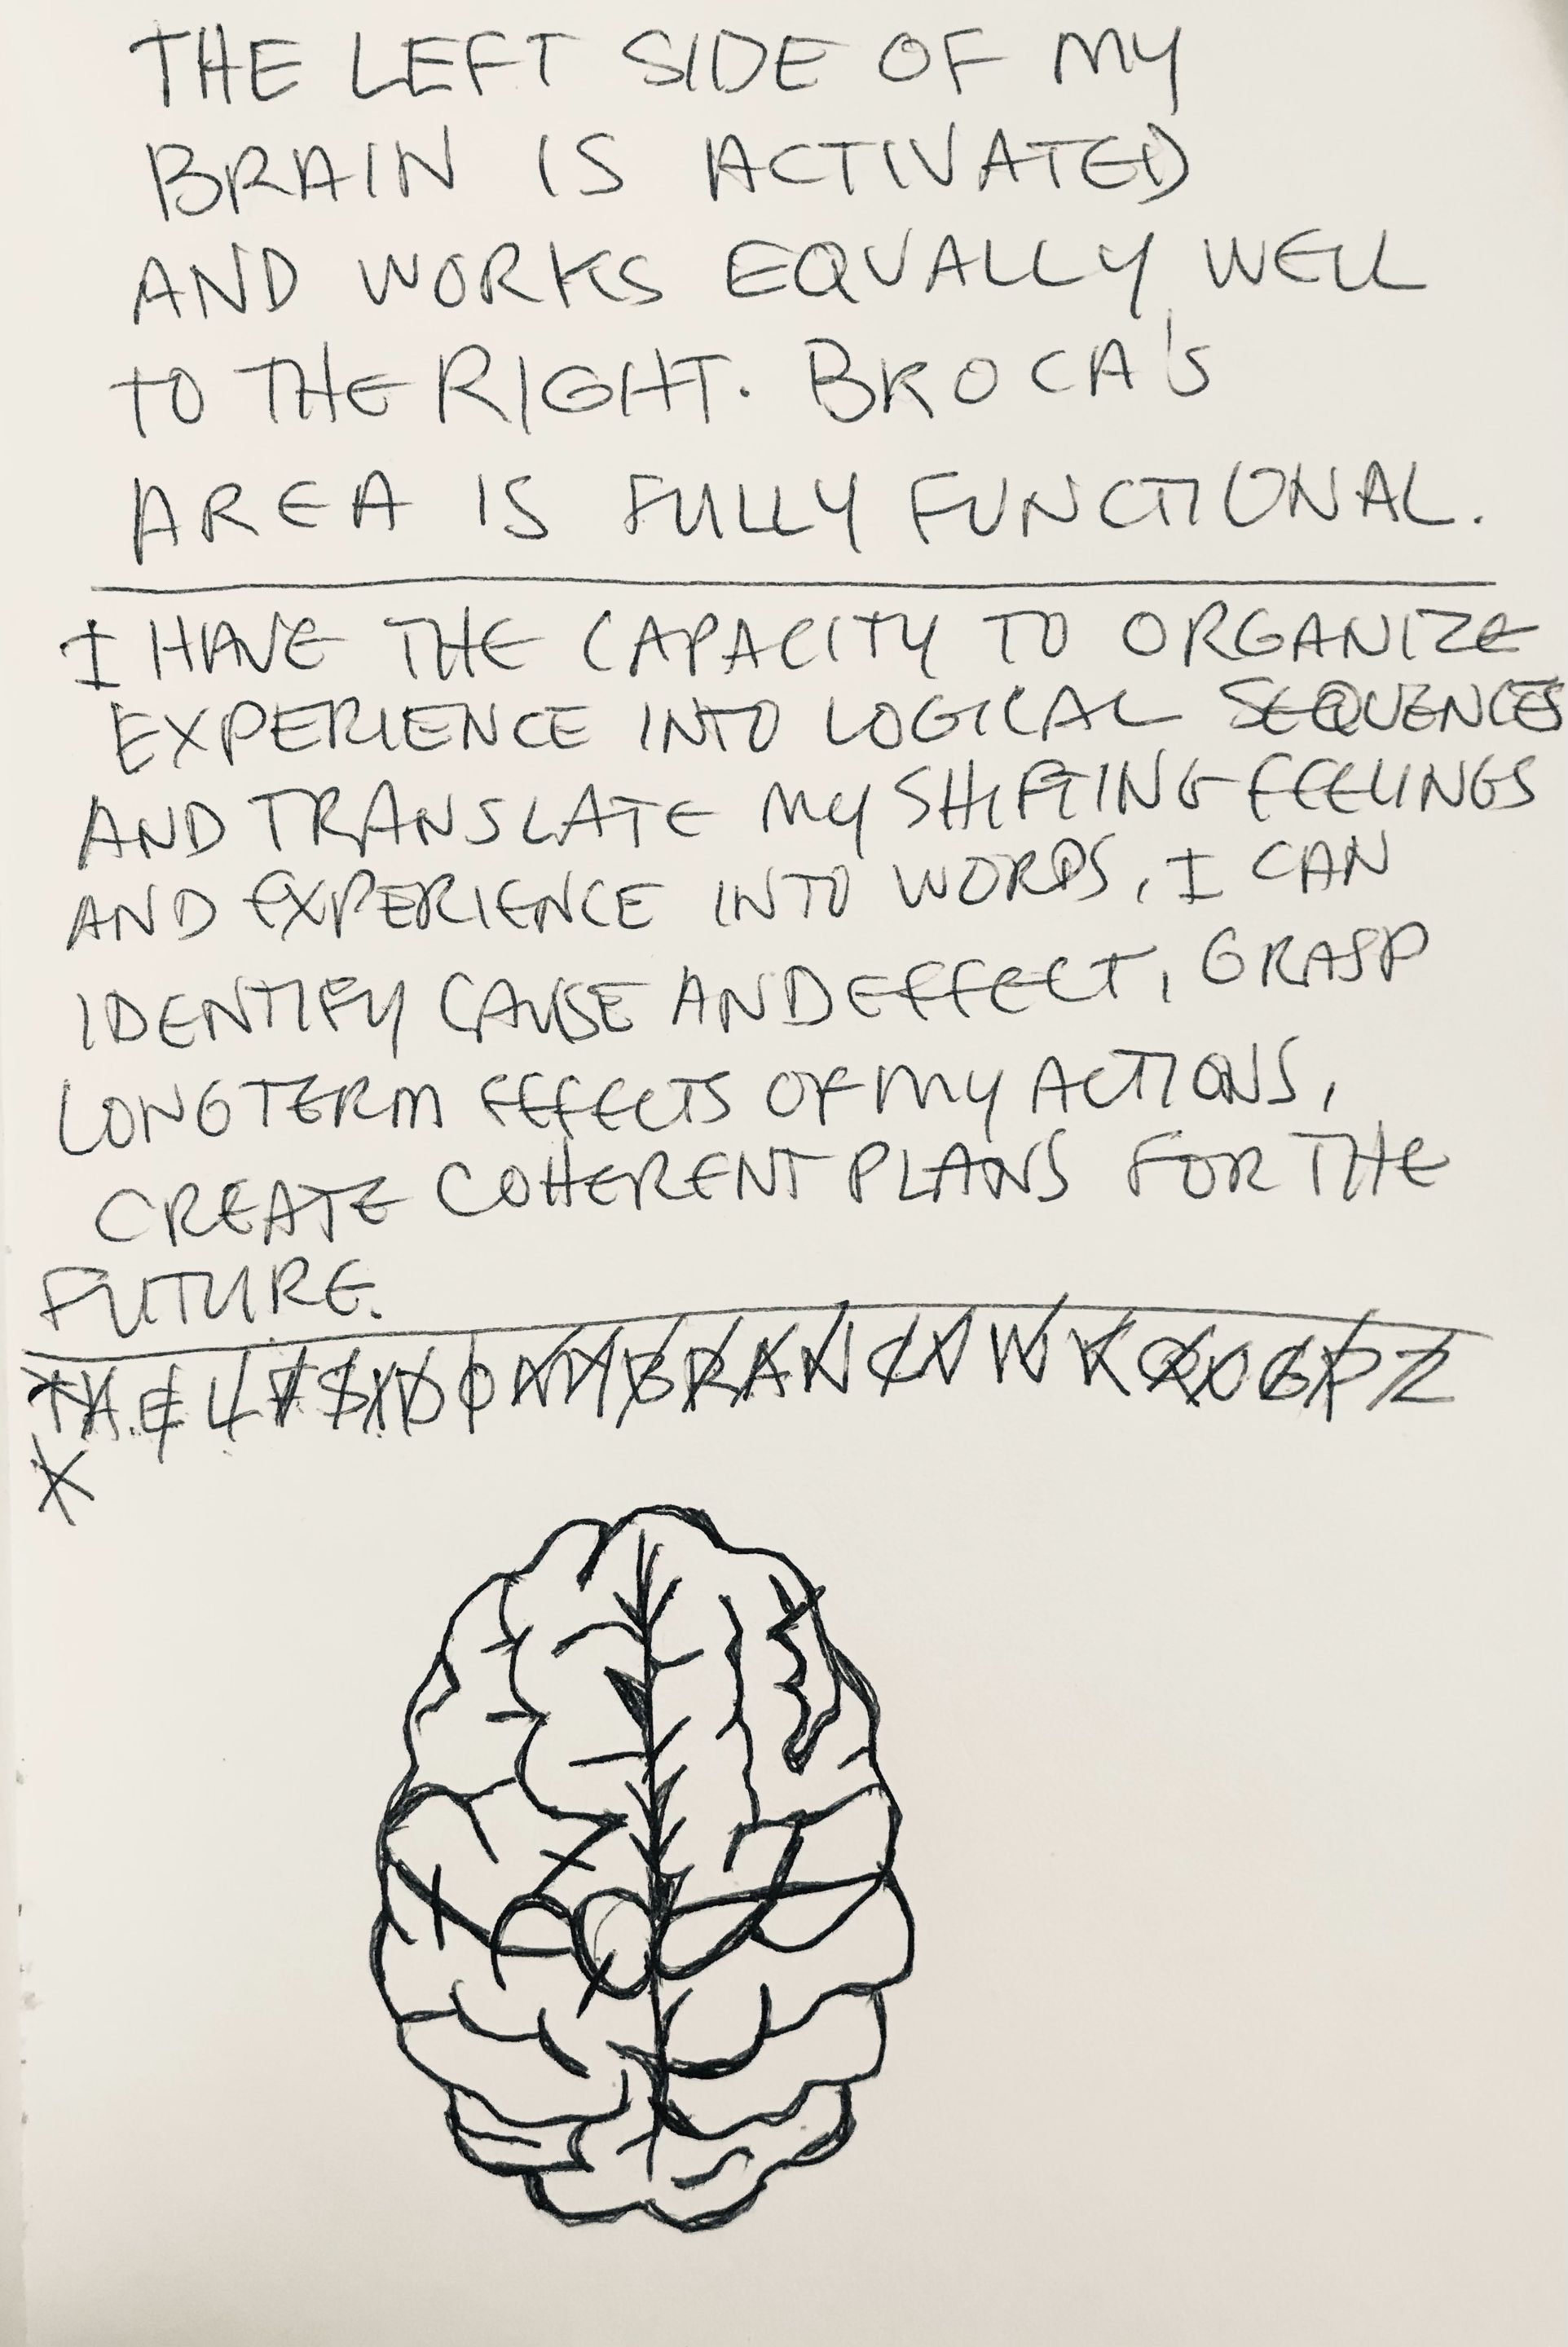 THE LEFT SIDE OF MY
BRAIN IS ACTIVATED
AND WORKS EQUALLY WELL
TO THE RIGHT. BROCA'S
AREA IS FULLY FUNCTIONAL.
I HAVE THE CAPACITY TO ORGANIZE
EXPERIENCE INTO LOGICAL SEQUENCES
AND TRANSLATE MY SHIFTING FEELINGS
AND EXPERIENCE INTO WORDS, I CAN
IDENTIFY CAUSE AND EFFECT, GRASP
LONG TERM EFFECTS OF MY ACTIONS,
CREATE COHERENT PLANS FOR THE
FUTURE.